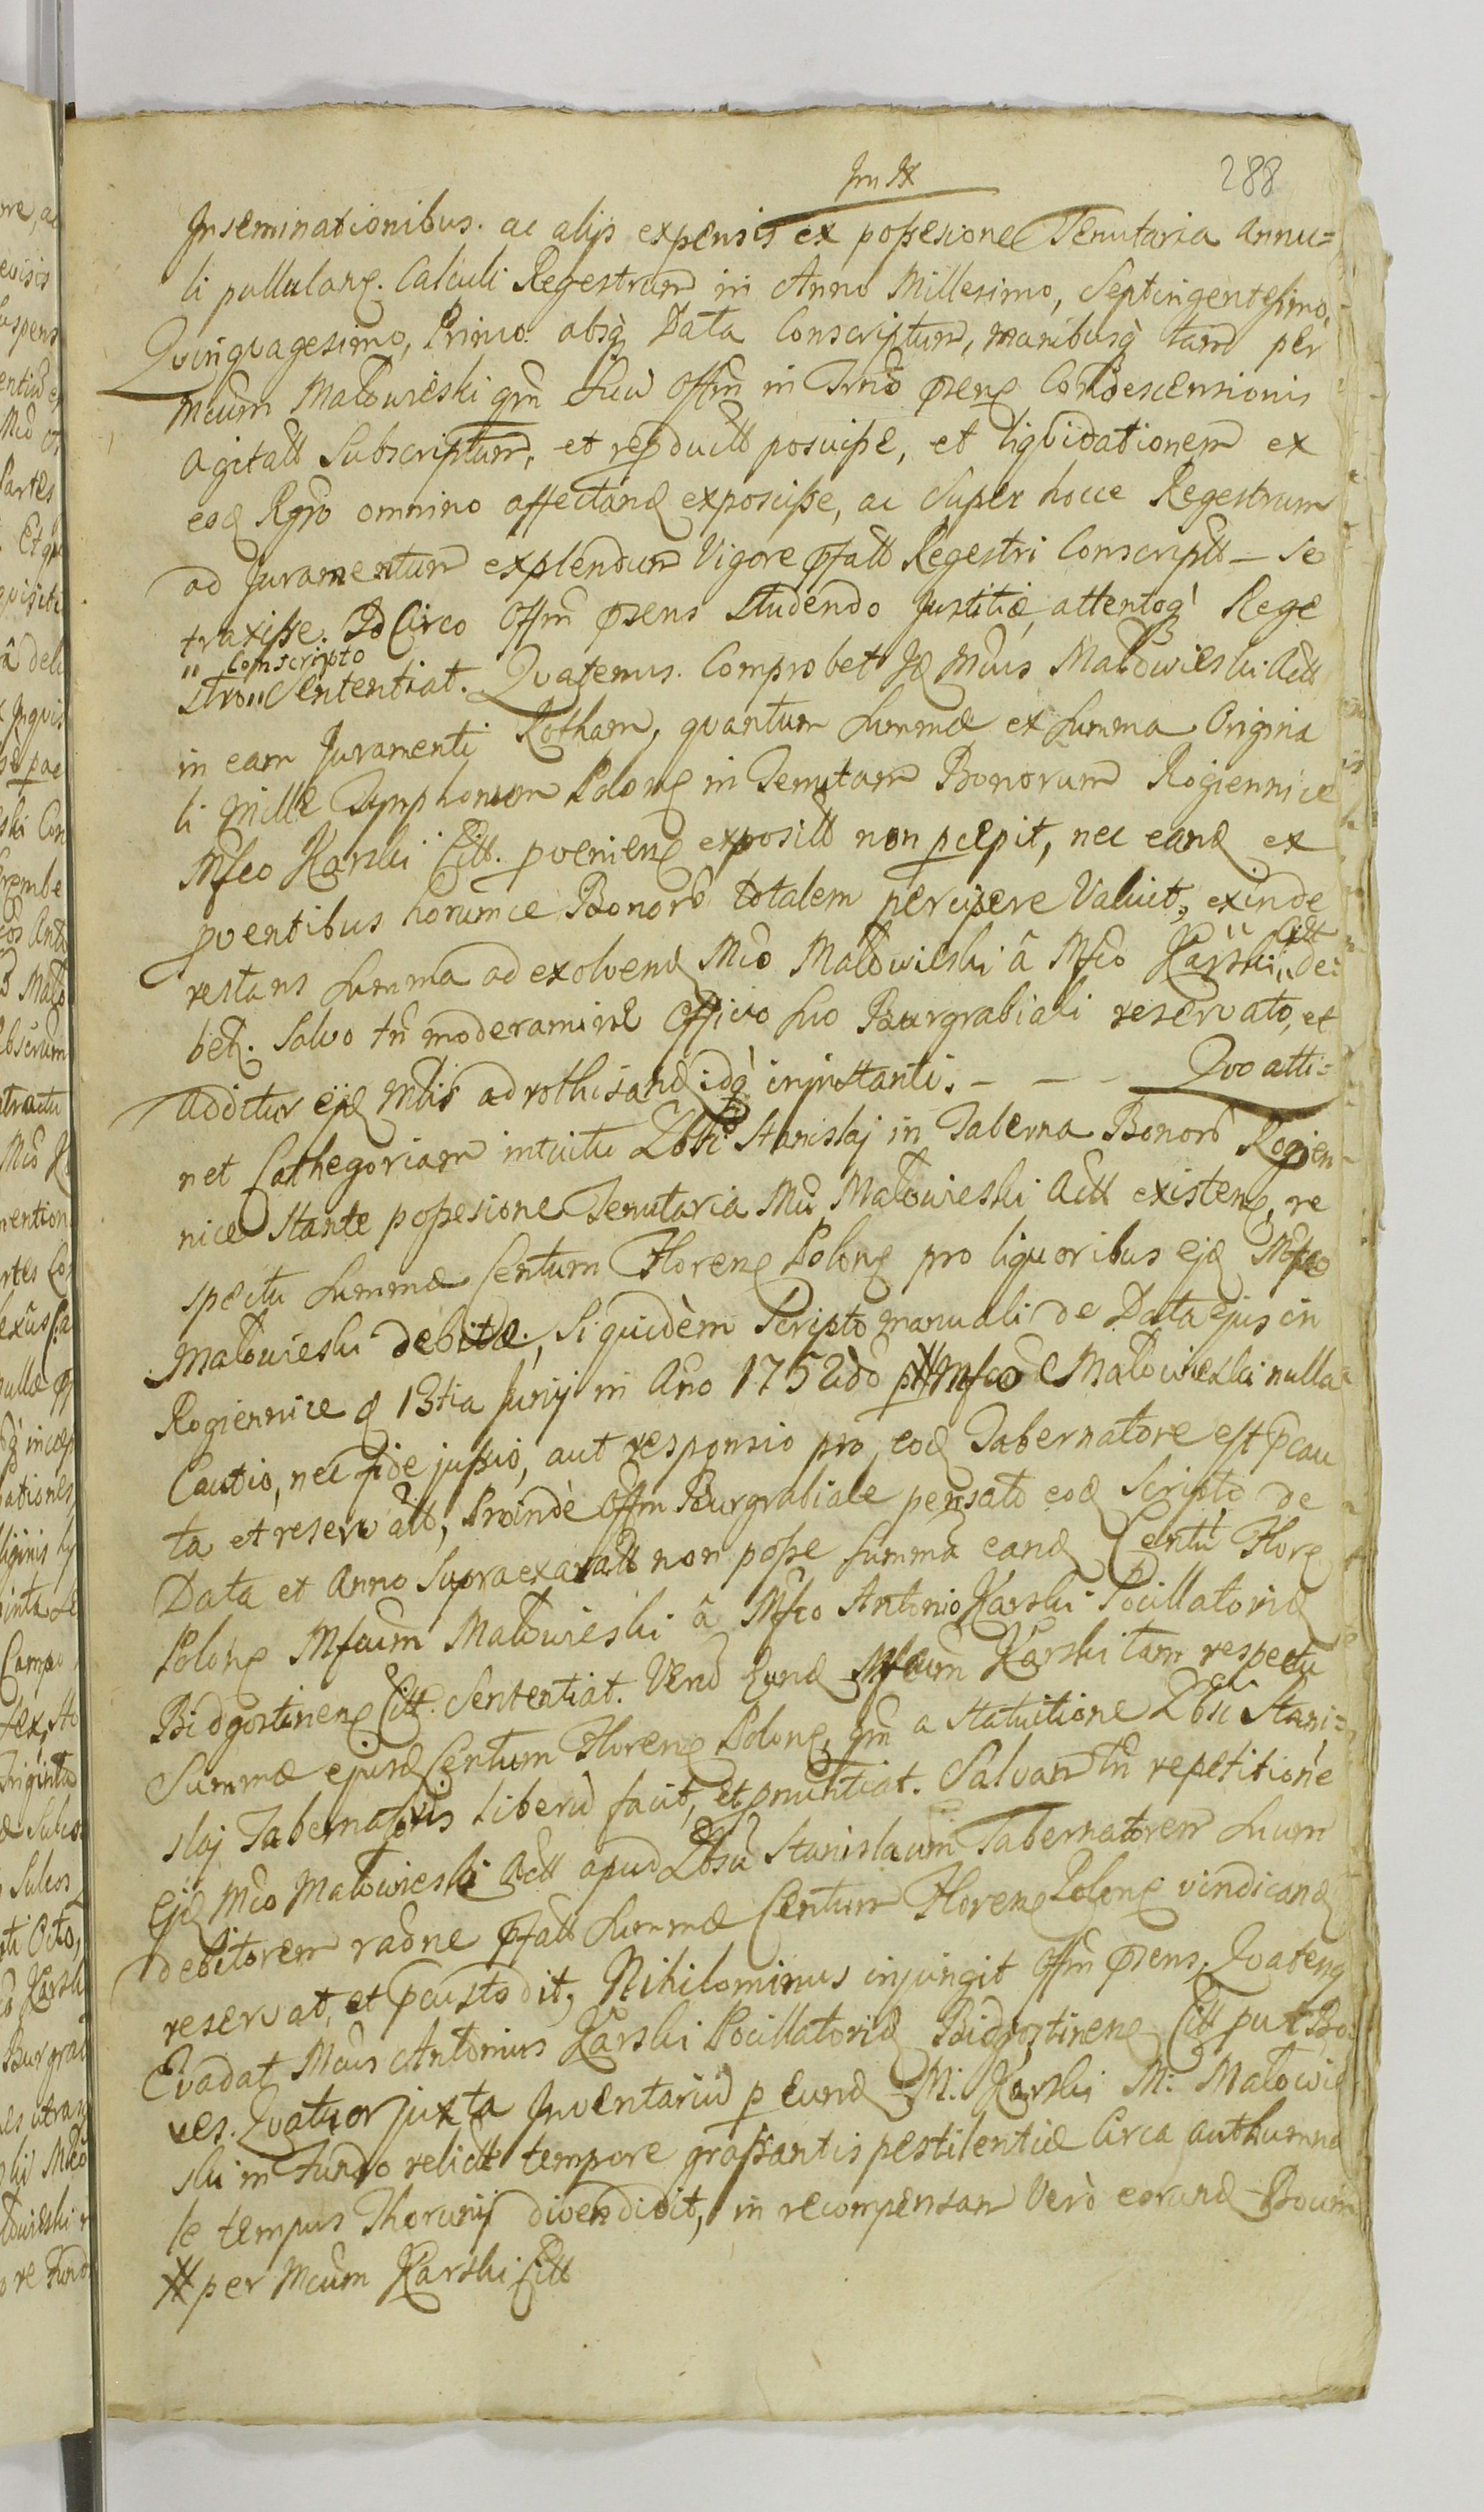 288
Inseminationibus. ac alijs expensis ex possesione Tenutaria Annu=
li pullulan. Calculi Regestrum in Anno Millesimo, Septingentesimo,
Qvinqvagesimo, Primo absq Data Conscriptum, manibusq tam per
Mcum Małowieski qm Suu Offm in Trno psens Condescensionis
Agitatt Subscriptum, et repductt posuisse, et liqvidationem ex
eod Rgro omnino affectand exposcisse, ac Super hocce Regestrum
ad Juramentum explendum Vigore pfatt Regestri Conscriptt – Se
traxisse. Id Circo Offm psens Studendo Justitiæ, attentoq Rege
,, Conscripto
stro,, Sententiat. Qvatenus. Comprobet Id Mcus Małowieski Actt
in eam Juramenti Rotham, qvantum Summæ ex Summa Origina
li Mille Tymphonum Polon in Tenutam Bonorum Rogiennice
Mfco Karski Citt. pvenien expositt non pcepit, nec eand ex
pventibus horumce Bonor totalem percipere Valuit, exinde
restans Summa ad exolvend Mco Małowieski â Mfco Karski,, Citt de:
bet. Salvo tn moderamine Officio Suo Burgrabiali reservato, et
Additur ejd Mtis ad rothisand idq in instanti. – – – Qvo atti=
net Cathegoriam intuitu Lbsi Stanislaj in Taberna Bonor Rogien=
nice Stante possesione Tenutaria Mci Małowieski Actt existen, re
spectu Summæ Centum Floren Polon pro liqvoribus ejd Mfco
Małowieski debitæ, Siqvidèm Scripto manuali de Data ejus in
Rogiennice d 13tia Junij in Ano 1752do Mfco Małowieski nulla
Cautio, nec fide jussio, aut responsio pro eod Tabernatore est pcau
ta et reservatt, Proindè Offm Burgrabiale pensato eod Scripto de
Data et Anno Supraexaratt non posse Summã eand Centu Flore
Polon Mfcum Małowieski â Mfco Antonio Karski Pocillatorid
Bidgostinen Citt. Sententiat. Verũ Eund Mfcum Karski tam respectu
Summæ ejusd Centum Floren Polon, qm a Statuitione Lbsi Stani=
slaj Tabernatoris liberũ facit, et pnuntiat. Salvam tn repetitionè
Ejd Mco Małowieski Actt apud Lbsũ Stanislaum Tabernatorem Suum
debitorem raõne pfatt Summæ Centum Floren Polon vindicand
reservat, et pcustodit, Nihilominus injungit Offm psens, Qvaten
Evadat Mcus Antonius Karski Pocillatorid Bidgostinen Citt put Bo
ves. Qvatuor juxta Inventariũ p Eund M: Karski M: Małowie
ski in Fundo relictt tempore grassantis pestilentiæ Circa Authumna
le tempus Thorunij divendidit, in recompensam Verò eorund Boum
per Mcum Karski Citt